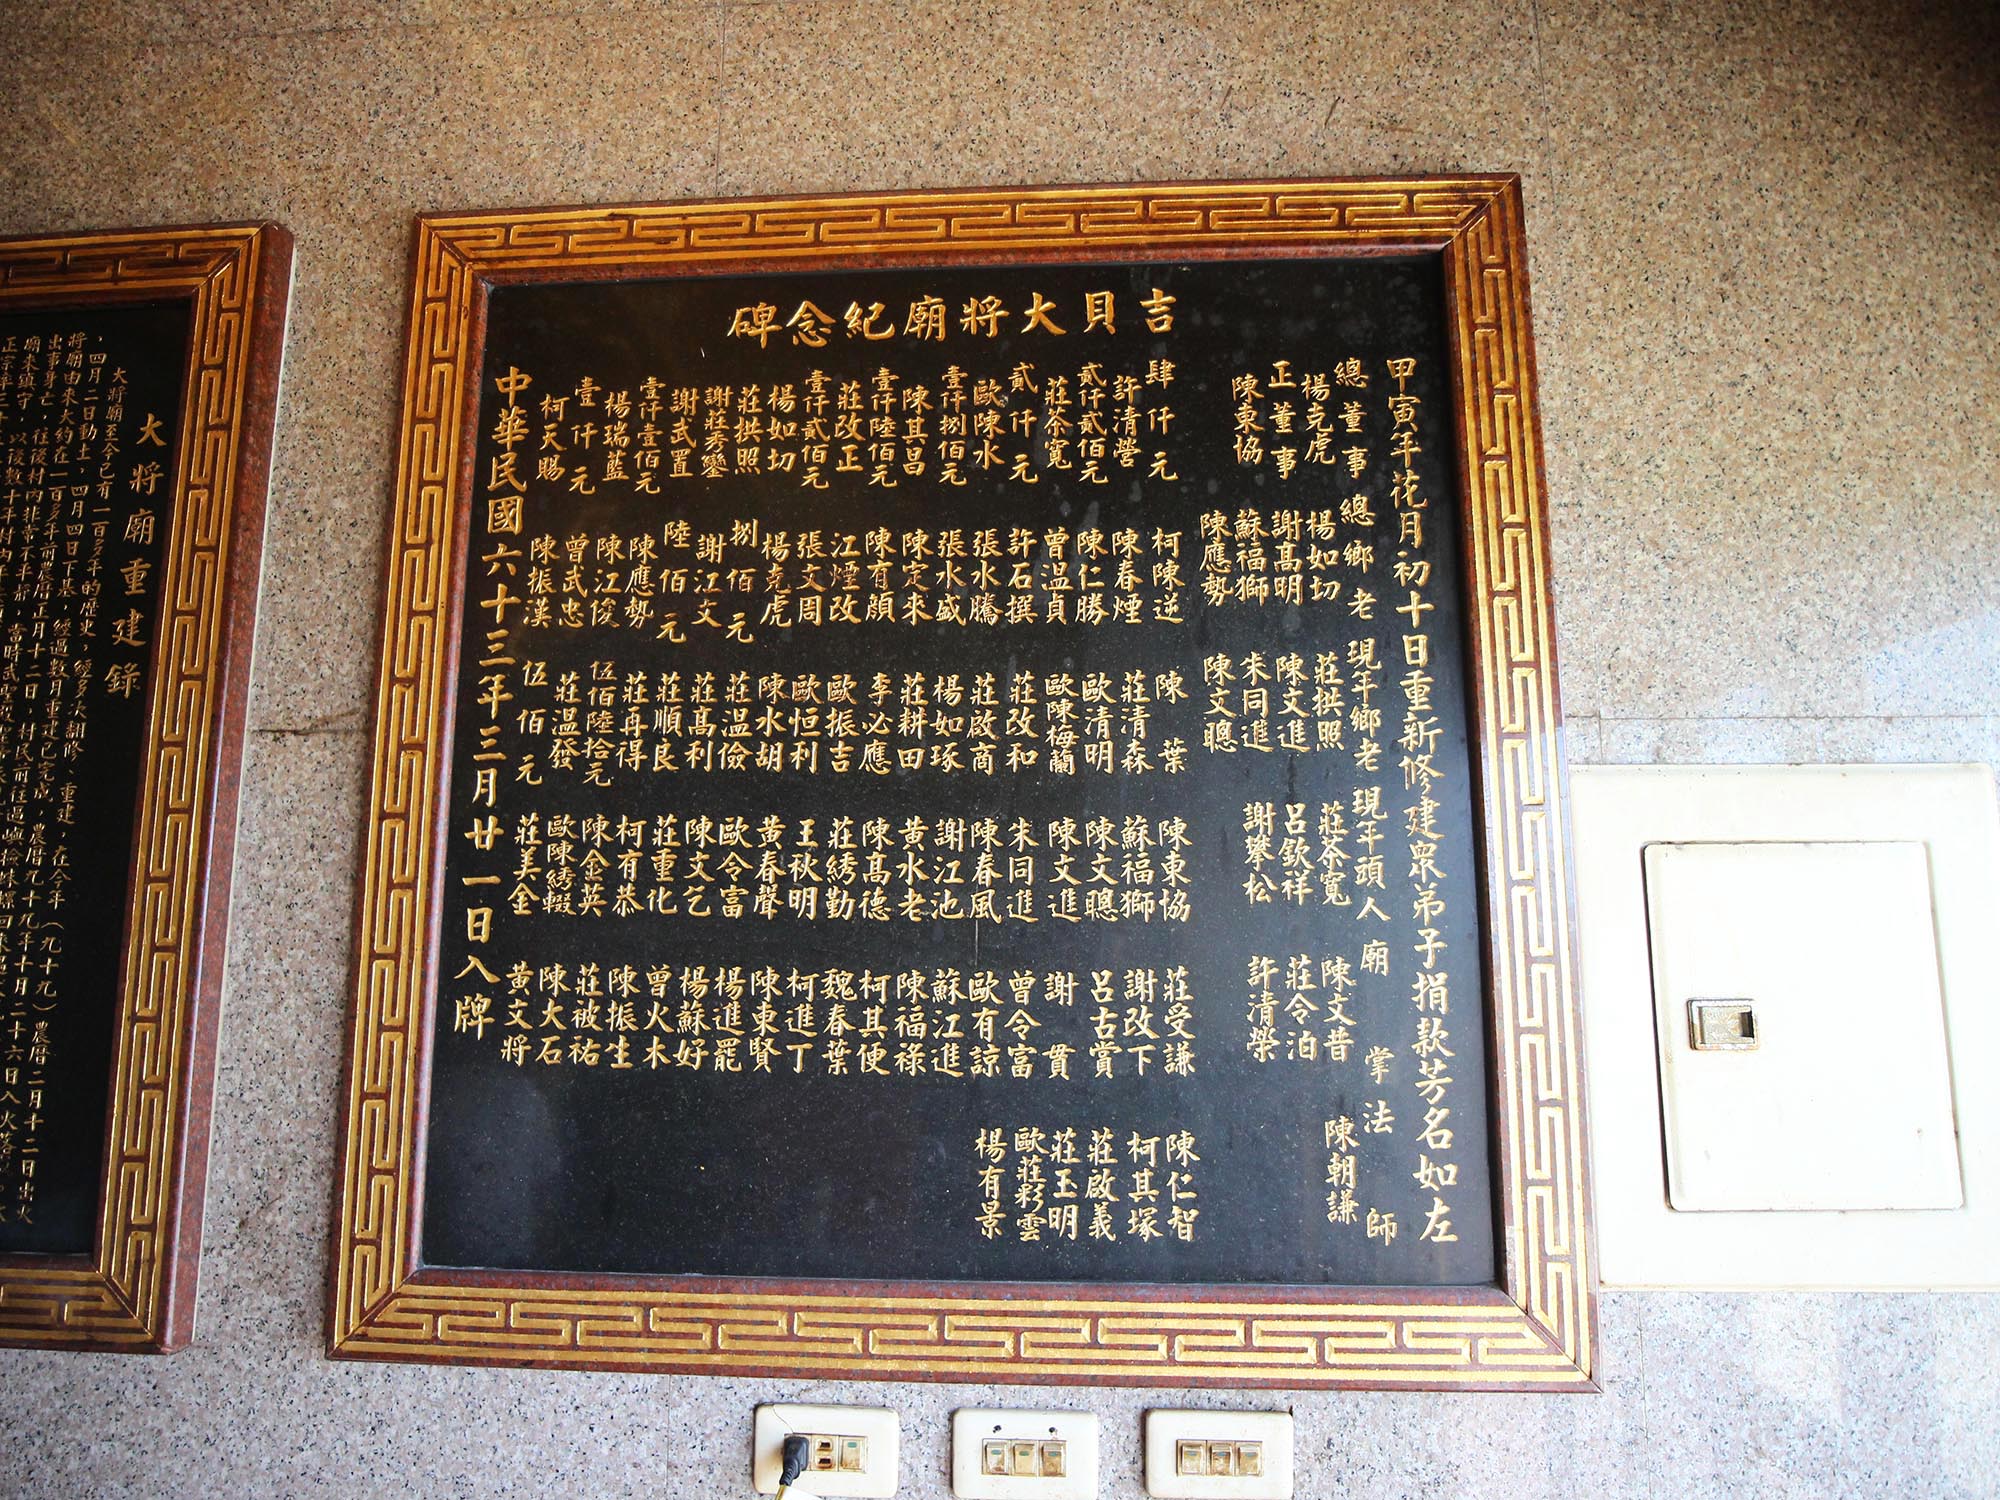 吉貝大將廟紀念碑
甲寅年花月初十日重新修建眾弟子捐款芳名如左
總董事 總鄉老 現年鄉老 現年頭人 廟 掌法師
楊克虎 楊如切 莊拱照 莊茶寬 陳文昔 陳朝謙
正董事 謝髙明 陳文進 呂欽祥 莊令泊
陳東協 蘇福獅 朱同進 謝攀松 許清榮
陳應勢 陳文聰
肆仟元 柯陳逆 陳葉 陳東協 莊受謙 陳仁智
許清營 陳春煙 莊清森 蘇福獅 謝改下 柯其塚
貳仟貳佰元 陳仁勝 歐清明 陳文聰 呂古賞 莊啟義
莊茶寬 曾溫貞 歐陳梅蘭 陳文進 謝貫 莊玉明
貳仟元 許石撰 莊改和 朱同進 曾令富 歐莊彩雲
歐陳水 張水騰 莊啟商 陳春風 歐有諒 楊有景
壹仟捌佰元 張水盛 楊如琢 謝江池 蘇江進
陳其昌 陳定來 莊耕田 黃水老 陳福祿
壹仟陸佰元 陳有顏 李必應 陳髙德 柯其便
莊改正 江煙改 歐振吉 莊綉勤 魏春葉
壹仟貳佰元 張文周 歐恒利 王秋明 柯進丁
楊如切 楊克虎 陳水胡 黃春聲 陳東賢
莊拱照 捌佰元 莊溫儉 歐令富 楊進罷
謝莊秀鑾 謝江文 莊髙利 陳文乞 楊蘇好
謝武置 陸佰元 莊順良 莊重化 曾火木
壹仟壹佰元 陳應勢 莊再得 柯有恭 陳振生
楊瑞藍 陳江俊 伍佰陸拾元 陳金英 莊被祐
壹仟元 曾武忠 莊溫發 歐陳綉輟 陳大石
柯天賜 陳振漢 伍佰元 莊美金 黃文將
中華民國六十三年三月廿一日入牌
大將廟重建錄
大將廟至今已有一百多年的歷史，經多次翻修、重建，在今年（九十九）農曆二月十二日出火
，四月二日動土，四月四日下基，經過數月重建已完成，農曆九十九年十月二十六日入火落
將廟由來大約在一百多年前農曆正月十二日，村民前往過嶼撿珠螺回來
出事身亡，往後村內非常不平靜，當時武
廟來鎮守，以後數十年村內